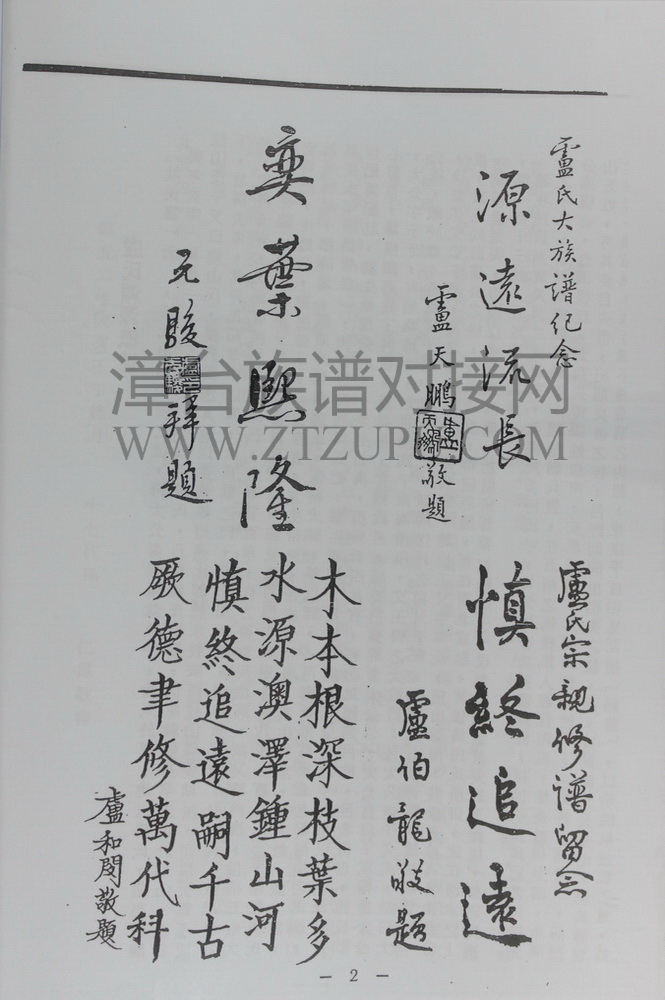 盧氏大族譜紀念
源遠流長
盧天鵬
敬題
奕葉熙隆
元駿
拜題
盧氏宗親修譜留念
慎終追遠
盧伯龍敬題
木本根深枝葉多
水源澳澤鍾山河
慎終追遠嗣千古
厥德聿修萬代科
盧和
敬題
漳台族谱对接网
WWW.ZTZUPU.COM
— 2 —